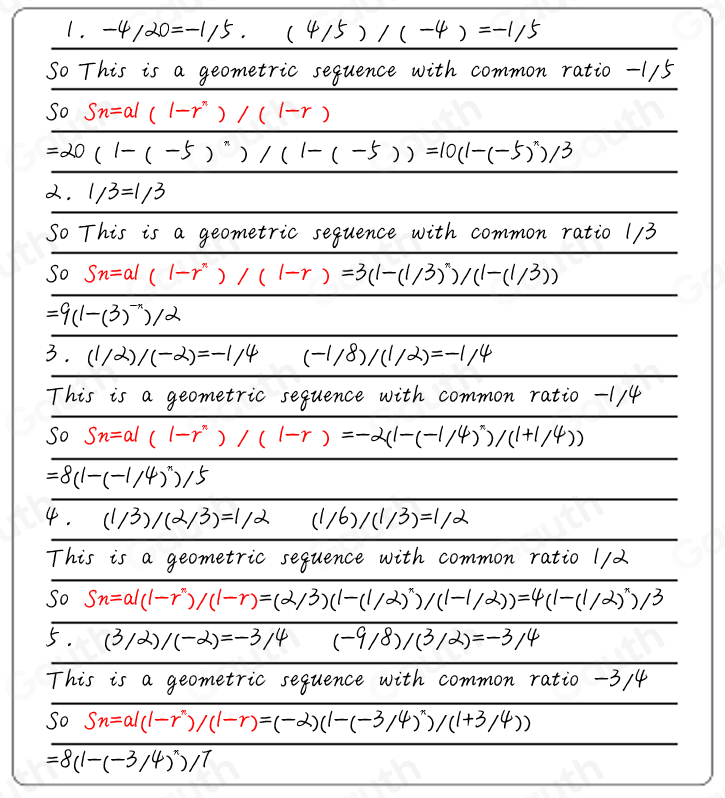 1. -4/20=-1/5. (4/5)/(-4)=-1/5
So This is a geometric sequence with common ratio -1/5
So Sn=a1(1-rⁿ)/(1-r)
=20(1-(-5)ⁿ)/(1-(-5))=10(1-(-5)ⁿ)/3
2. 1/3=1/3
So This is a geometric sequence with common ratio 1/3
So Sn=a1(1-rⁿ)/(1-r)=3(1-(1/3)ⁿ)/(1-(1/3))
=9(1-(3)⁻ⁿ)/2
3. (1/2)/(-2)=-1/4 (-1/8)/(1/2)=-1/4
This is a geometric sequence with common ratio -1/4
So Sn=a1(1-rⁿ)/(1-r)=-2(1-(-1/4)ⁿ)/(1+1/4))
=8(1-(-1/4)ⁿ)/5
4. (1/3)/(2/3)=1/2 (1/6)/(1/3)=1/2
This is a geometric sequence with common ratio 1/2
So Sn=a1(1-rⁿ)/(1-r)=(2/3)(1-(1/2)ⁿ)/(1-1/2))=4(1-(1/2)ⁿ)/3
5. (3/2)/(-2)=-3/4 (-9/8)/(3/2)=-3/4
This is a geometric sequence with common ratio -3/4
So Sn=a1(1-rⁿ)/(1-r)=(-2)(1-(-3/4)ⁿ)/(1+3/4))
=8(1-(-3/4)ⁿ)/7